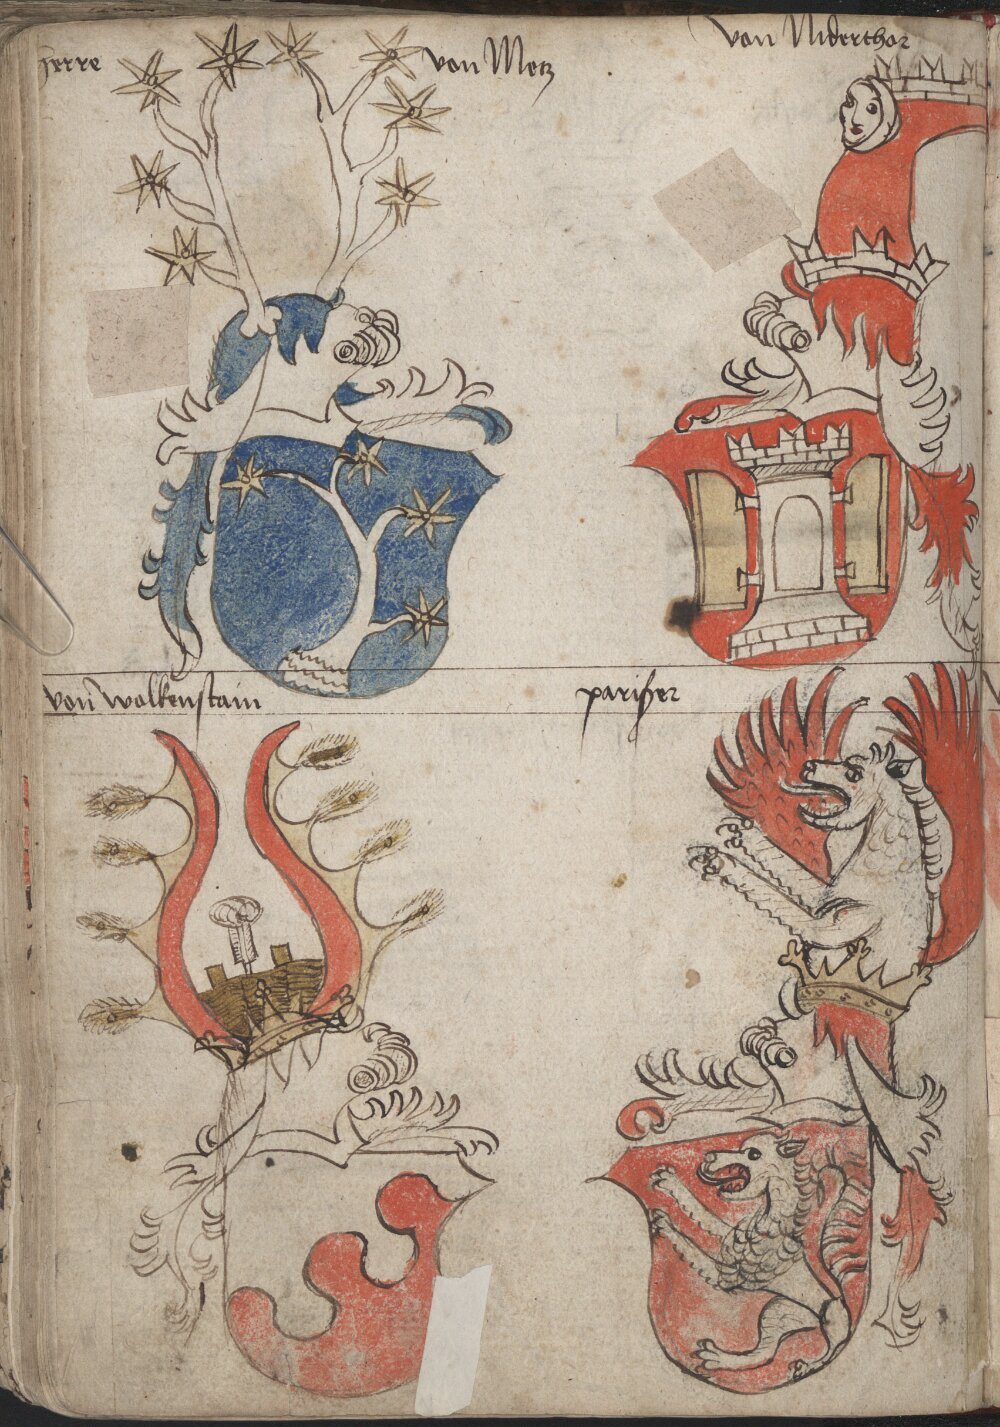 herre von Metz
von Niderthor
von wolkenstain
parißer